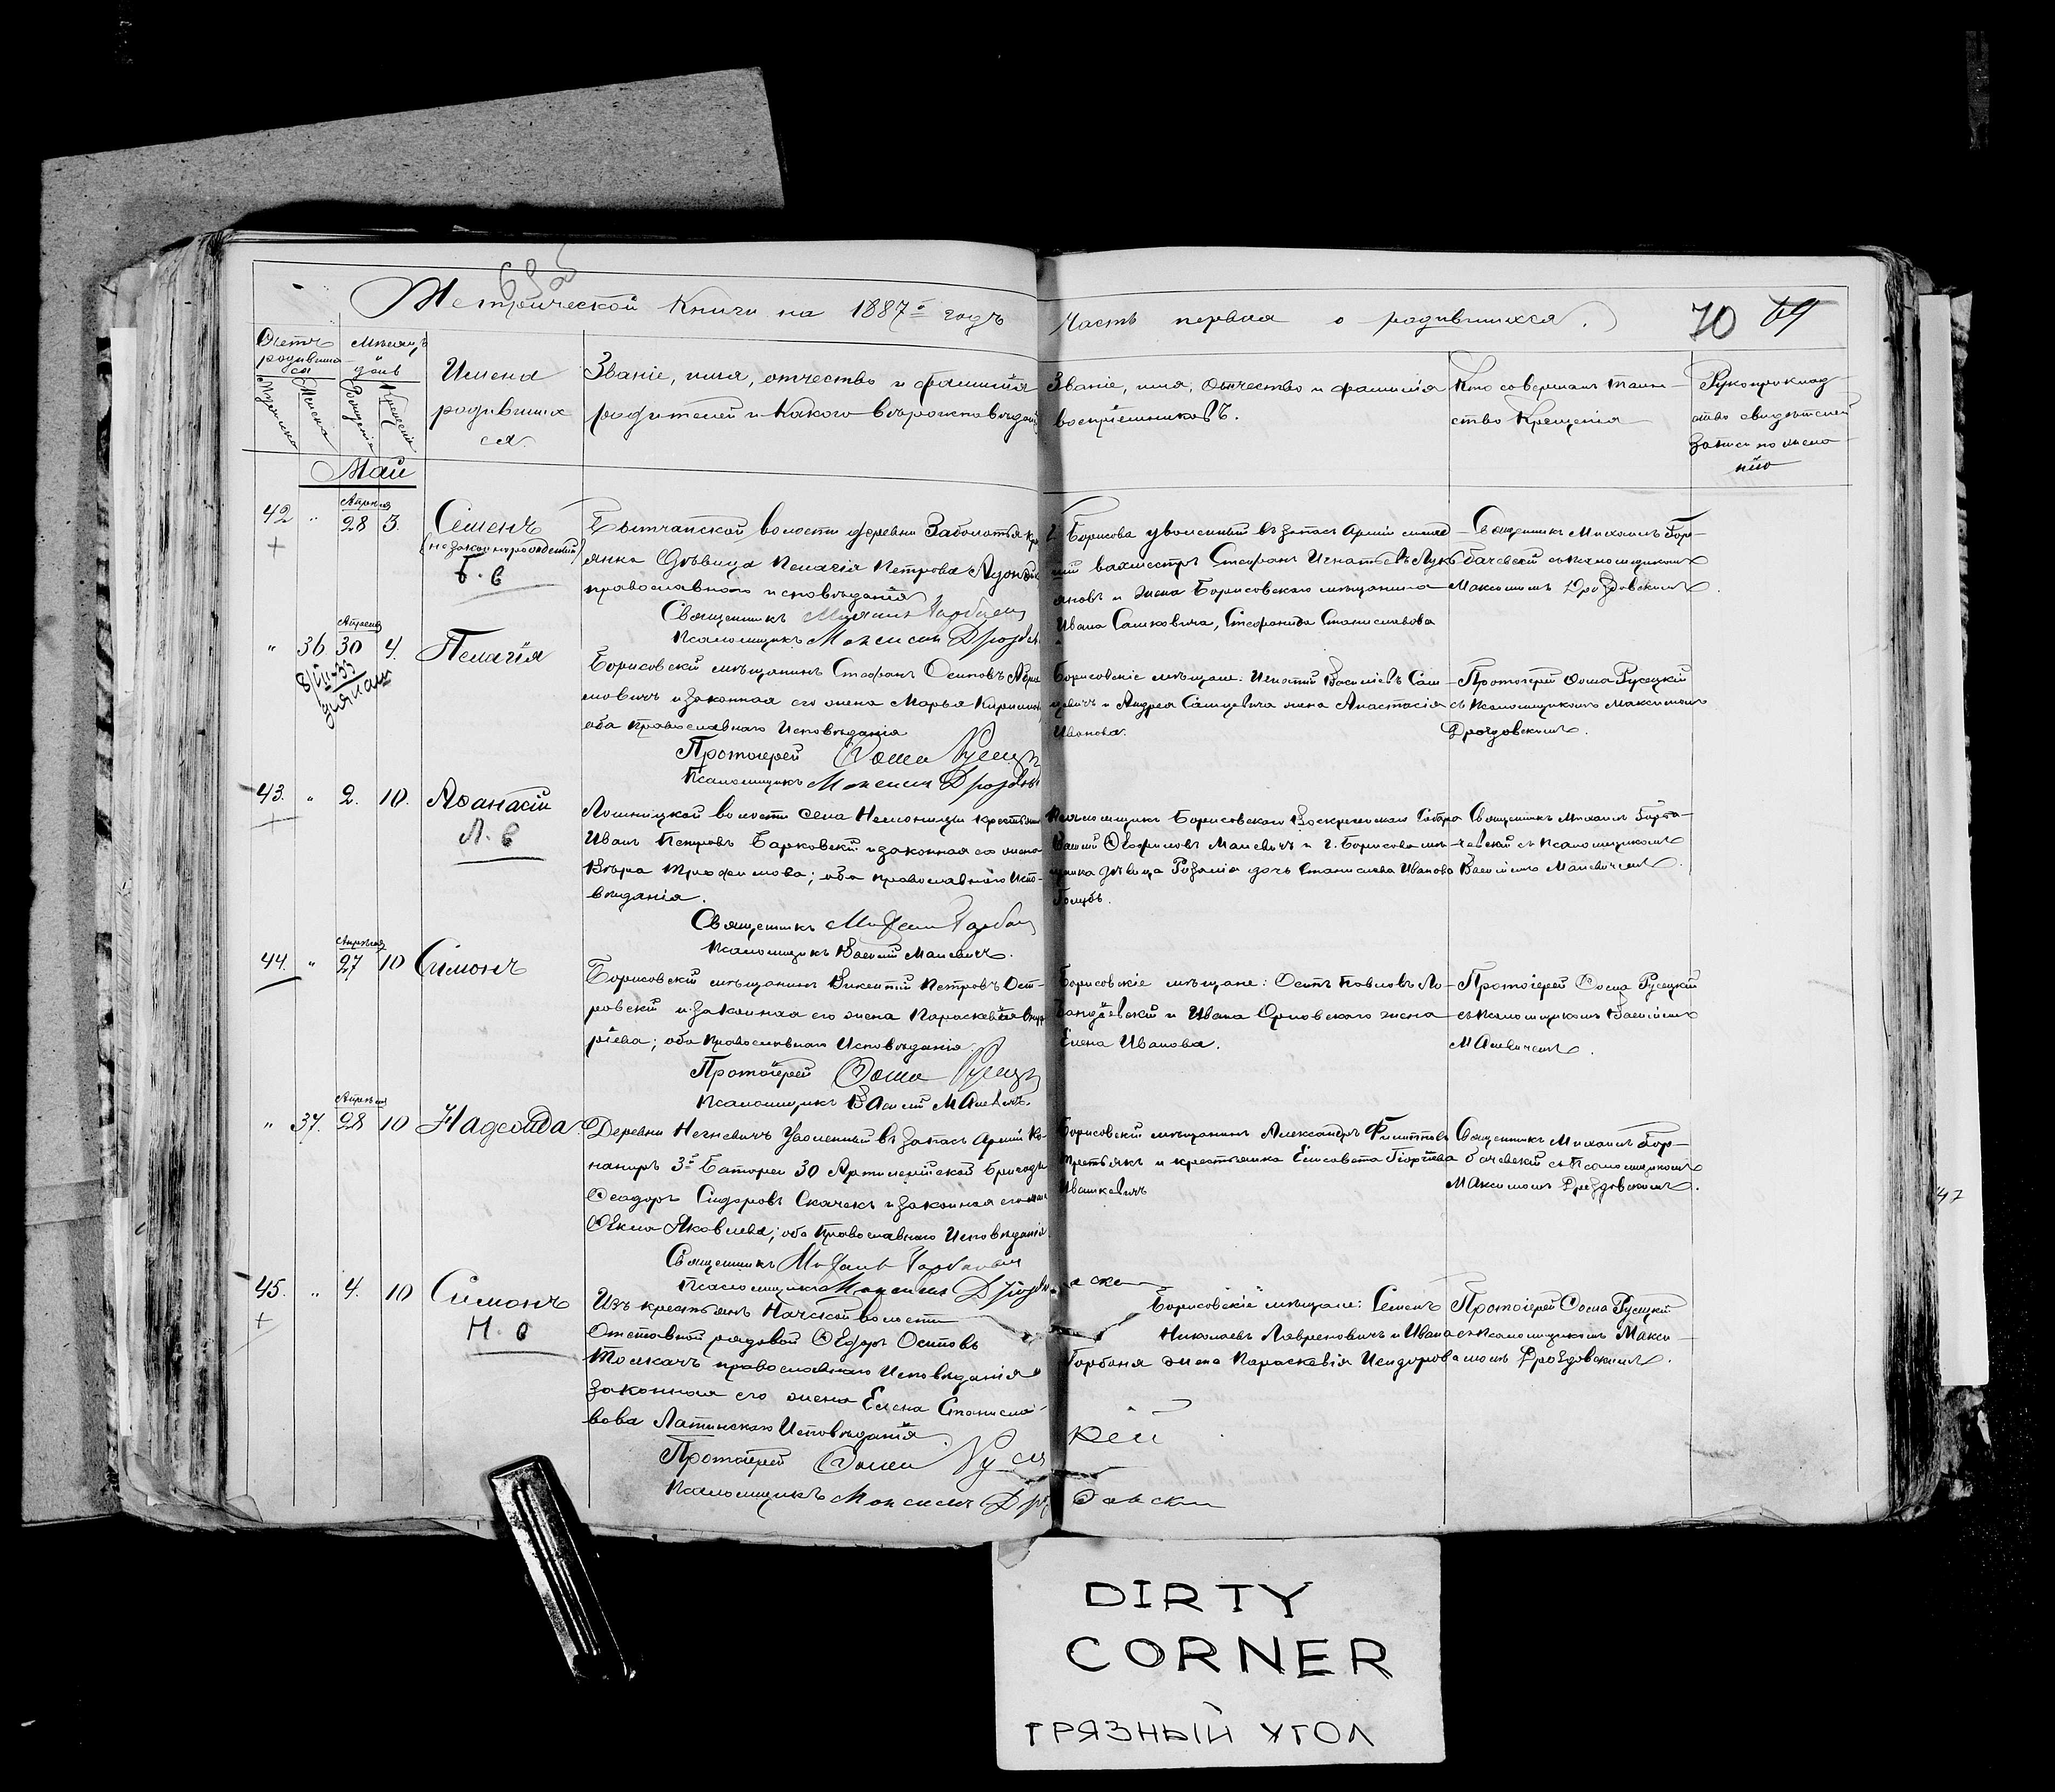 Метрической Книги на 1887й годъ
Часть первая о родившихся.
70
69
Счетъ родившихся
Мѣсяцъ и день
Мужска
Женска
Рожденія
Крещенія
Имена
родивших
ся.
Званіе, имя, отчество и фамилія
родителей и какого вѣроисповѣдан
Званіе, имя, отчество и фамилія
воспріемниковъ.
Кто совершалъ таин-
ство Крещенія
Рукоприклад
ство свидѣтелей
записи по жела
нію
Май
42 " Апрѣля 28 3. Семенъ
(незаконнорожденный)
Б. в
волости деревни Заболотья кр
янка Дѣвица Пелагія Петрова
православнаго исповѣданія
Священникъ Михаилъ
Псаломщикъ Максим Дроздов
Г. Борисова уволенный въ запасъ Арміи
вахмистръ Стефанъ Игнатьевъ Лукь
яновъ и жена Борисовскаго мѣщанина
Ивана Сашковича, Стефанида Станиславова
Священникъ Михаилъ Гор-
бачевскій съ псаломщикомъ
Максимомъ Дроздовскимъ.
" 36 Апрѣля 30 4. Пелагія
Борисовскій мѣщанинъ Стефанъ Осиповъ
мовичъ и законная его жена Марья
оба Православнаго Исповѣданія
Протоіерей Ѳома Русецк
Псаломщикъ Максим Дроздовс
Борисовскіе мѣщане: Игнатій Васильевъ Саш
цевичъ и Андрея Сашцевича жена Анастасія
Иванова.
Протоіерей Ѳома Русецкій
съ Псаломщикомъ Максимомъ
Дроздовскимъ.
43. " 2. 10. Аѳанасій
Л. в
Лошницкой волости села Неманицы крестьян
Иванъ Петровъ Барковскій и законная его жена
Вѣра Трофимова; оба православнаго Испо-
вѣданія.
Священникъ Михаил Горбач
Псаломщикъ Василій Маневичъ.
Псаломщикъ Борисовскаго Воскресенскаго Собора
Василій Маневичъ и г. Борисова мѣ-
щанка дѣвица Розалія дочь Станислава Иванова
Голубъ.
Священникъ Михаилъ Горба-
чевскій съ Псаломщикомъ
Василіемъ Маневичемъ.
44. " Апрѣля 27 10 Симонъ
Борисовскій мѣщанинъ Викентій Петровъ Ост-
ровскій и законная его жена Параскевія
оба православнаго Исповѣданія
Протоіерей Ѳома Русецк
Псаломщикъ Василій Маневичъ.
Борисовскіе мѣщане: Осипъ Павловъ
и Ивана Орловскаго жена
Елена Иванова.
Протоіерей Ѳома Русецкій
съ Псаломщикомъ Василіемъ
Маневичемъ.
" 37. Апрѣля 28 10
Деревни уволенный въ запасъ Арміи Ко-
ниръ 3й Батареи 30 Артилерійской Бригады
Ѳеодоръ Сидоровъ Скачекъ и законная его жена
Ѳекла Яковлева; оба Православнаго Исповѣданія.
Священникъ Михаилъ Горбачев
Псаломщикъ Максим Дроздовски
Борисовскій мѣщанинъ Александръ Филиппов
Третьякъ и крестьянка Елисовета Георгіева
Ивашкевичъ
Священникъ Михаилъ Гор-
бачевскій съ Псаломщикомъ
Максимомъ Дроздовскимъ.
45. " 4. 10 Симонъ
Н. в
Изъ крестьянъ Начской волости
Отставной рядовой Ѳедоръ Осиповъ
Толкачъ православнаго Исповѣданія и
законная его жена Елена Станисла
вова Латинскаго Исповѣданія.
Протоіерей Ѳома Русецкій
Псаломщикъ Максим Дроздовски
Борисовскіе мѣщане: Семенъ
Николаевъ Лавреновичъ и Ивана
Горбаня жена Параскевія Исидорова
Протоіерей Ѳома Русецкій
съ псаломщикомъ Макси-
момъ Дроздовскимъ.
47
DIRTY
CORNER
ГРЯЗНЫЙ УГОЛ